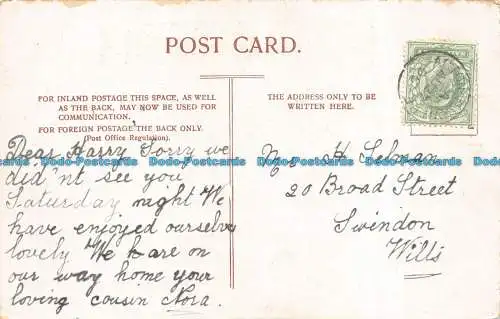 POST CARD.
FOR INLAND POSTAGE THIS SPACE, AS WELL
AS THE BACK, MAY NOW BE USED FOR
COMMUNICATION.
FOR FOREIGN POSTAGE THE BACK ONLY.
(Post Office Regulation).
THE ADDRESS ONLY TO BE
WRITTEN HERE.
Dear Harry Sorry we
did'nt see you
Saturday night We
have enjoyed ourselves
lovely We are on
our way home your
loving cousin Nora.
H
20 Broad Street
Swindon
Wilts